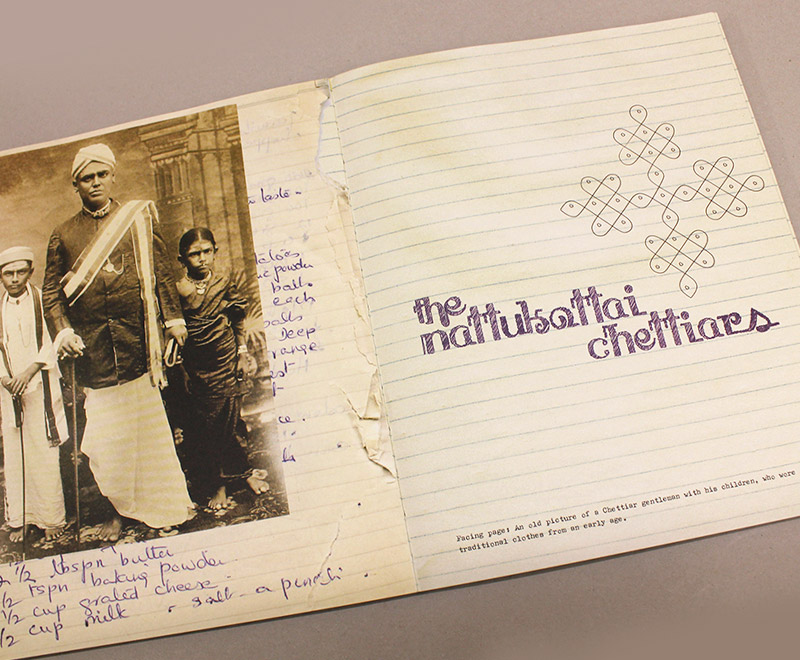 taste.
powder
balls
each
balls
Deep
range
2 1/2 tbspn butter
1/2 tspn baking powder
1/2 cup grated cheese.
1/2 cup milk . salt - a pinch.
the
nattukottai
chettiars
Facing page: An old picture of a Chettiar gentleman with his children, who wore
traditional clothes from an early age.